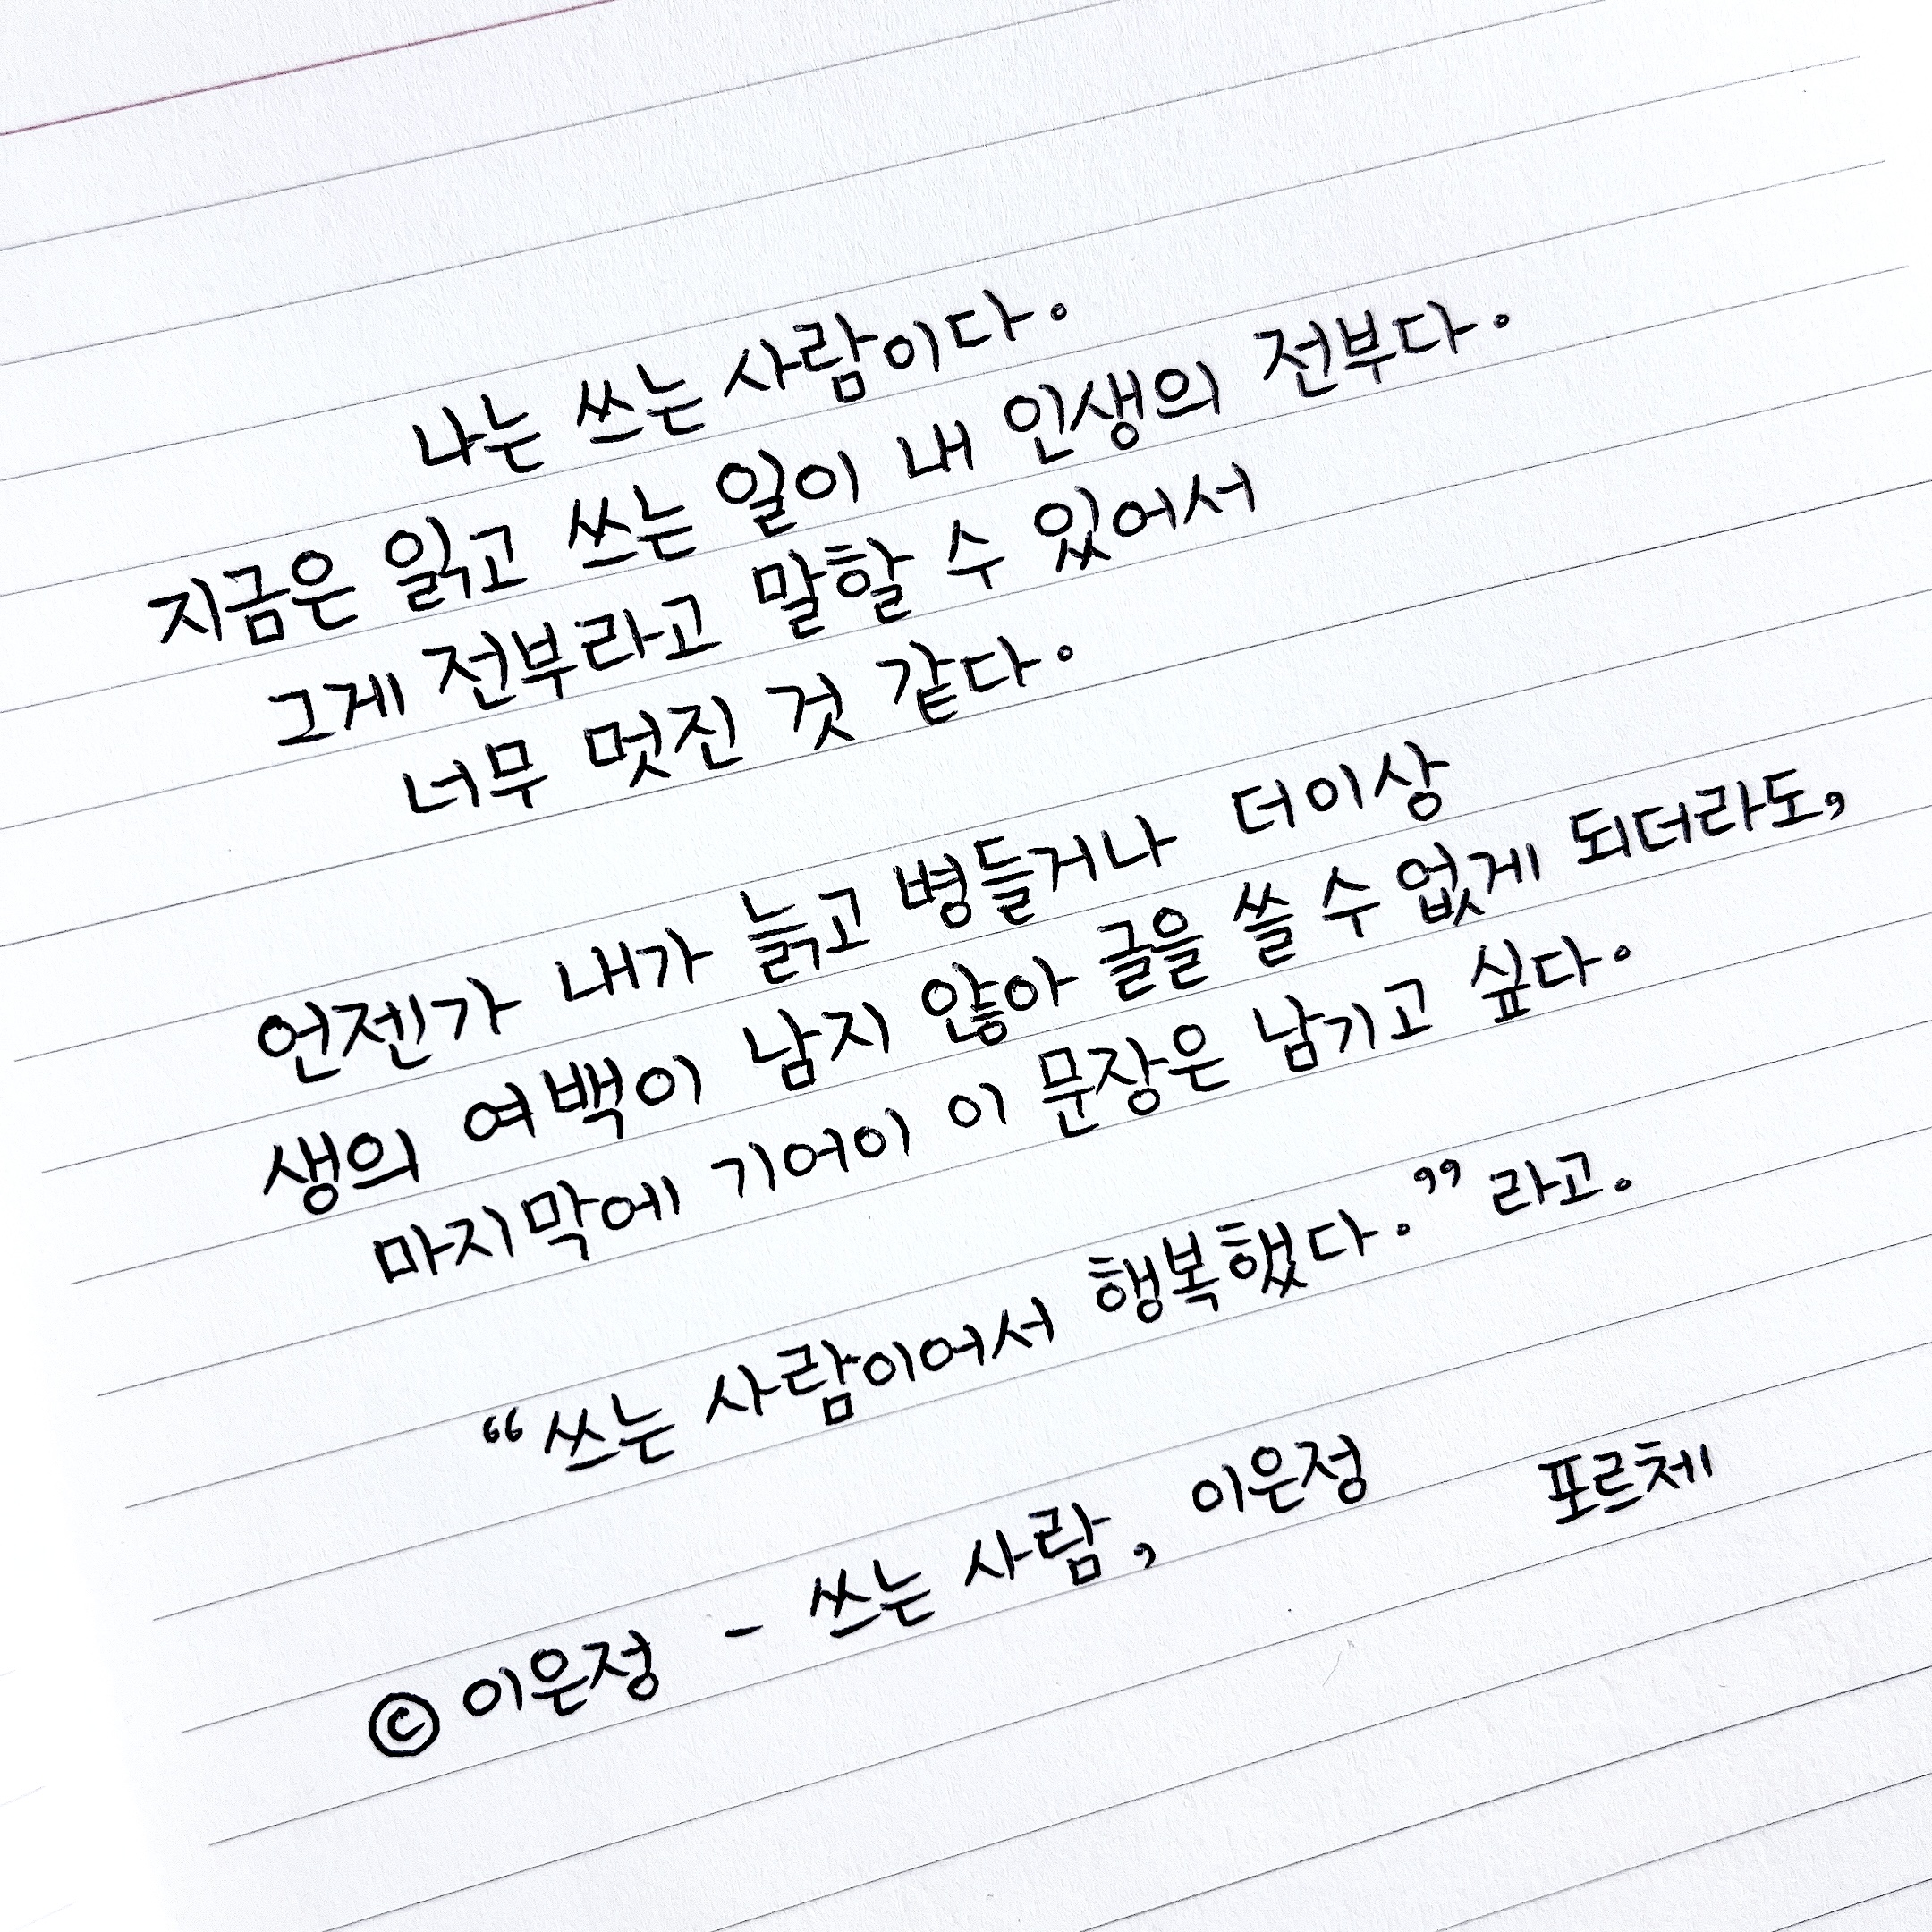 나는 쓰는 사람이다.
지금은 읽고 쓰는 일이 내 인생의 전부다.
그게 전부라고 말할 수 있어서
너무 멋진 것 같다.
언젠가 내가 늙고 병들거나 더이상
생의 여백이 남지 않아 글을 쓸 수 없게 되더라도,
마지막에 기어이 이 문장은 남기고 싶다.
“쓰는 사람이어서 행복했다.” 라고.
© 이은정 - 쓰는 사람, 이은정 포르체